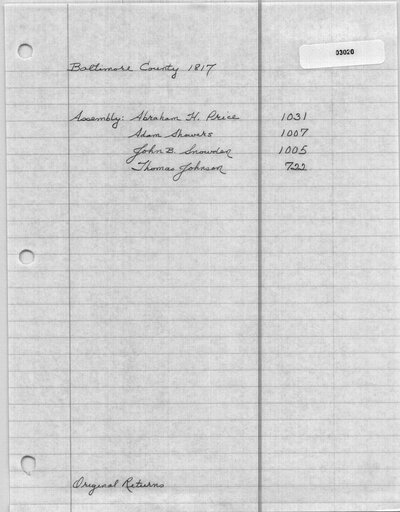 03020
Baltimore County 1817
Assembly: Abraham H. Price 1031
Adam Showers 1007
John B. Snowden 1005
Thomas Johnson 722
Original Returns